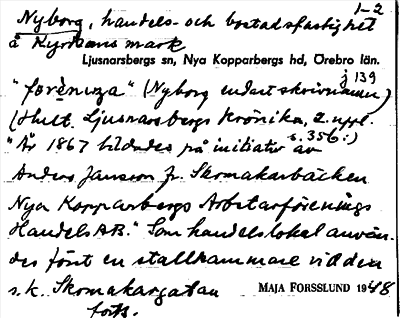 1-2
Nyborg, handels- och bostadsfastighet
å Kyrkans mark
Ljusnarsbergs sn, Nya Kopparbergs hd, Örebro län.
j 139
"före̍nıŋa" (Nyborg endast skrivnamn)
(Hult. Ljusnarsbergs Krönika, 2. uppl.
s. 356:)
"År 1867 bildades på initiativ av
Anders Jansson fr. Skomakarbäcken
Nya Kopparbergs Arbetarförenings
Handels AB." Som handelslokal använ-
des först en stallkammare vid den
s.k. Skomakargatan
MAJA FORSSLUND 1948
forts.